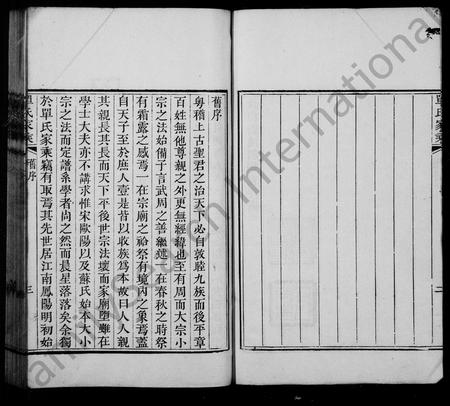 單氏家乘
二
舊序
粤稽上古聖君之治天下必自敦睦九族而後平章
百姓無他尊親之外更無經緯也至有周而大宗小
宗之法始備于言武周之善繼述一在春秋之時祭
有霜露之感焉一在宗廟之祫祭有境內之象焉蓋
自天子至於庶人壹是皆以收族爲本故曰人人親
其親長其長而天下平後世宗法壞而家廟墮雖在
學士大夫亦不講求惟宋歐陽以及蘇氏始本大小
宗之法而定譜系學者尚之然而晨星落落矣余獨
於單氏家乘竊有取焉其先世居江南鳳陽明初始
單氏家乘
舊序
三
FamilySearch International